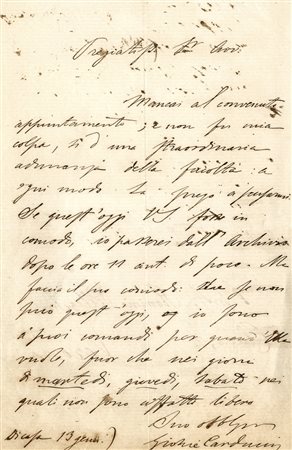 Pregiatiss. Sr. Cav.
Mancai al convenuto
appuntamento; e non fu mia
colpa, sì d'una straordinaria
adunanza della facoltà: a
ogni modo La prego a scusarmi.
Se quest'oggi V.S. fosse in
comodo, io passerei dall'Archivio
dopo le ore 11 ant. di poco. Ma
faccia il suo comodo: che se non
può quest'oggi, io sono
a' suoi comandi per quand'Ella
vuole, fuor che nei giorni
di martedì, giovedì, sabato nei
quali non sono affatto libero
Suo obblgmo
Di casa 13 genn.)
Giosuè Carducci